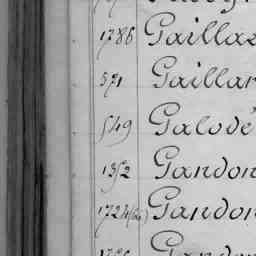 1786 Gaillar
571 Gaillar
549 Galodé
1352 Gandon
1724 Gandon